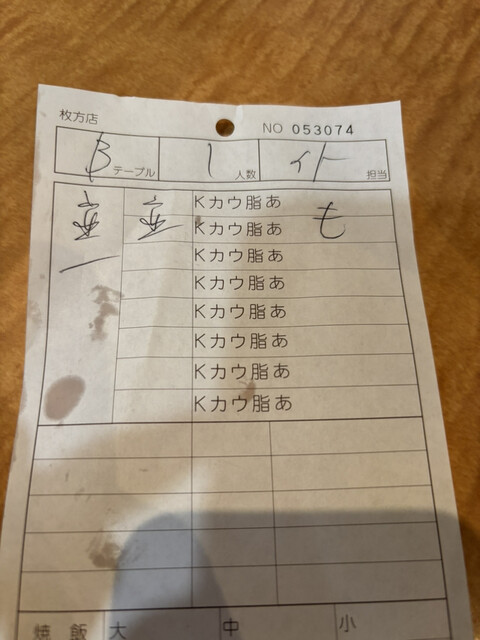 枚方店
NO 053074
B テーブル 1 人数 イト 担当
Kカウ脂あ
Kカウ脂あ も
Kカウ脂あ
Kカウ脂あ
Kカウ脂あ
Kカウ脂あ
Kカウ脂あ
Kカウ脂あ
焼飯 大 中 小